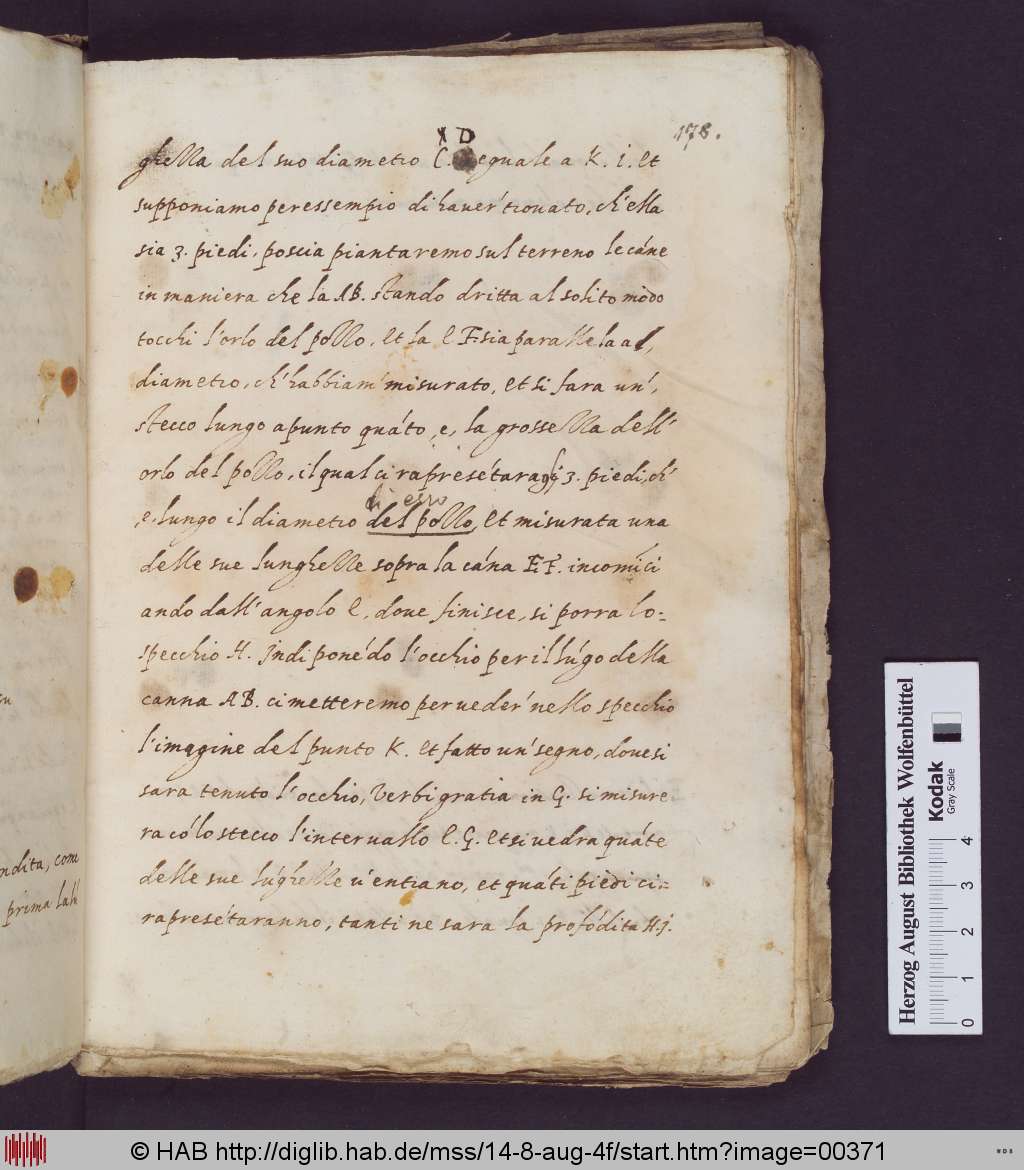 178.
X D
ghezza del suo diametro C. eguale a K. i. et
supponiamo per essempio di haver' trovato, ch'ella
sia 3. piedi, poscia piantaremo sul terreno le cáne
in maniera che la AB. stando dritta al solito modo
tocchi l'orlo del pozzo, et la E F. sia parallela al,
diametro, ch'habbiam' misurato, et si fara un',
stecco lungo apunto quáto, e, la grossezza dell'
orlo del pozzo, il qual ci rapresétara 3. piedi, ch'
di esso
,e, lungo il diametro del pozzo, et misurata una
delle sue lunghezze sopra la cána EF. incominci
ando dall'angolo E, dove finisce, si porra lo-
specchio H. Indi ponédo l'occhio per il lúgo della
canna AB. ci metteremo per veder' nello specchio
l'imagine del punto K. et fatto un' segno, dove si
sara tenuto l'occhio, verbi gratia in G. si misure
ra có lo stecco l'intervallo E.G. et si vedra quáte
delle sue lúghezze v'entrano, et quáti piedi ci=
rapresétaranno, tanti ne sara la profódita H.I.
ndita, come
prima
Herzog August Bibliothek Wolfenbüttel
Kodak
Gray Scale
0 1 2 3 4
© HAB http://diglib.hab.de/mss/14-8-aug-4f/start.htm?image=00371